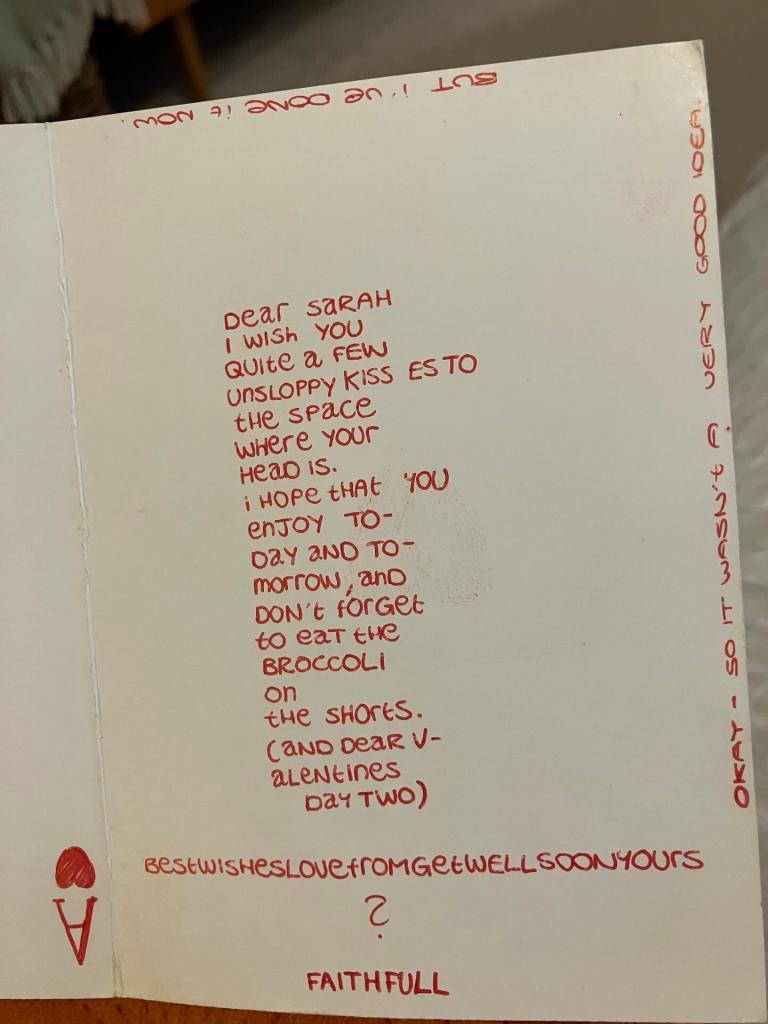 Dear SaRAH
I WISH YOU
QUITE a FEW
UNSLOPPY KISS ES TO
tHE SPACE
WHERE YOUR
HEAD IS.
i HOPE tHAt YOU
enJOY TO-
DAY AND TO-
morrow, and
DON't forGet
to eaT tHE
BROCCOLI
on
tHE SHOrtS.
(AND Dear V-
aLENtines
DAY TWO)
BestWISHesLOVefrOMGetWELLSOONYOUrS
?
FAITHFULL
OKAY - SO IT WASN't A VERY GOOD IDEA,
BUT i'VE DONE it NOW.
A